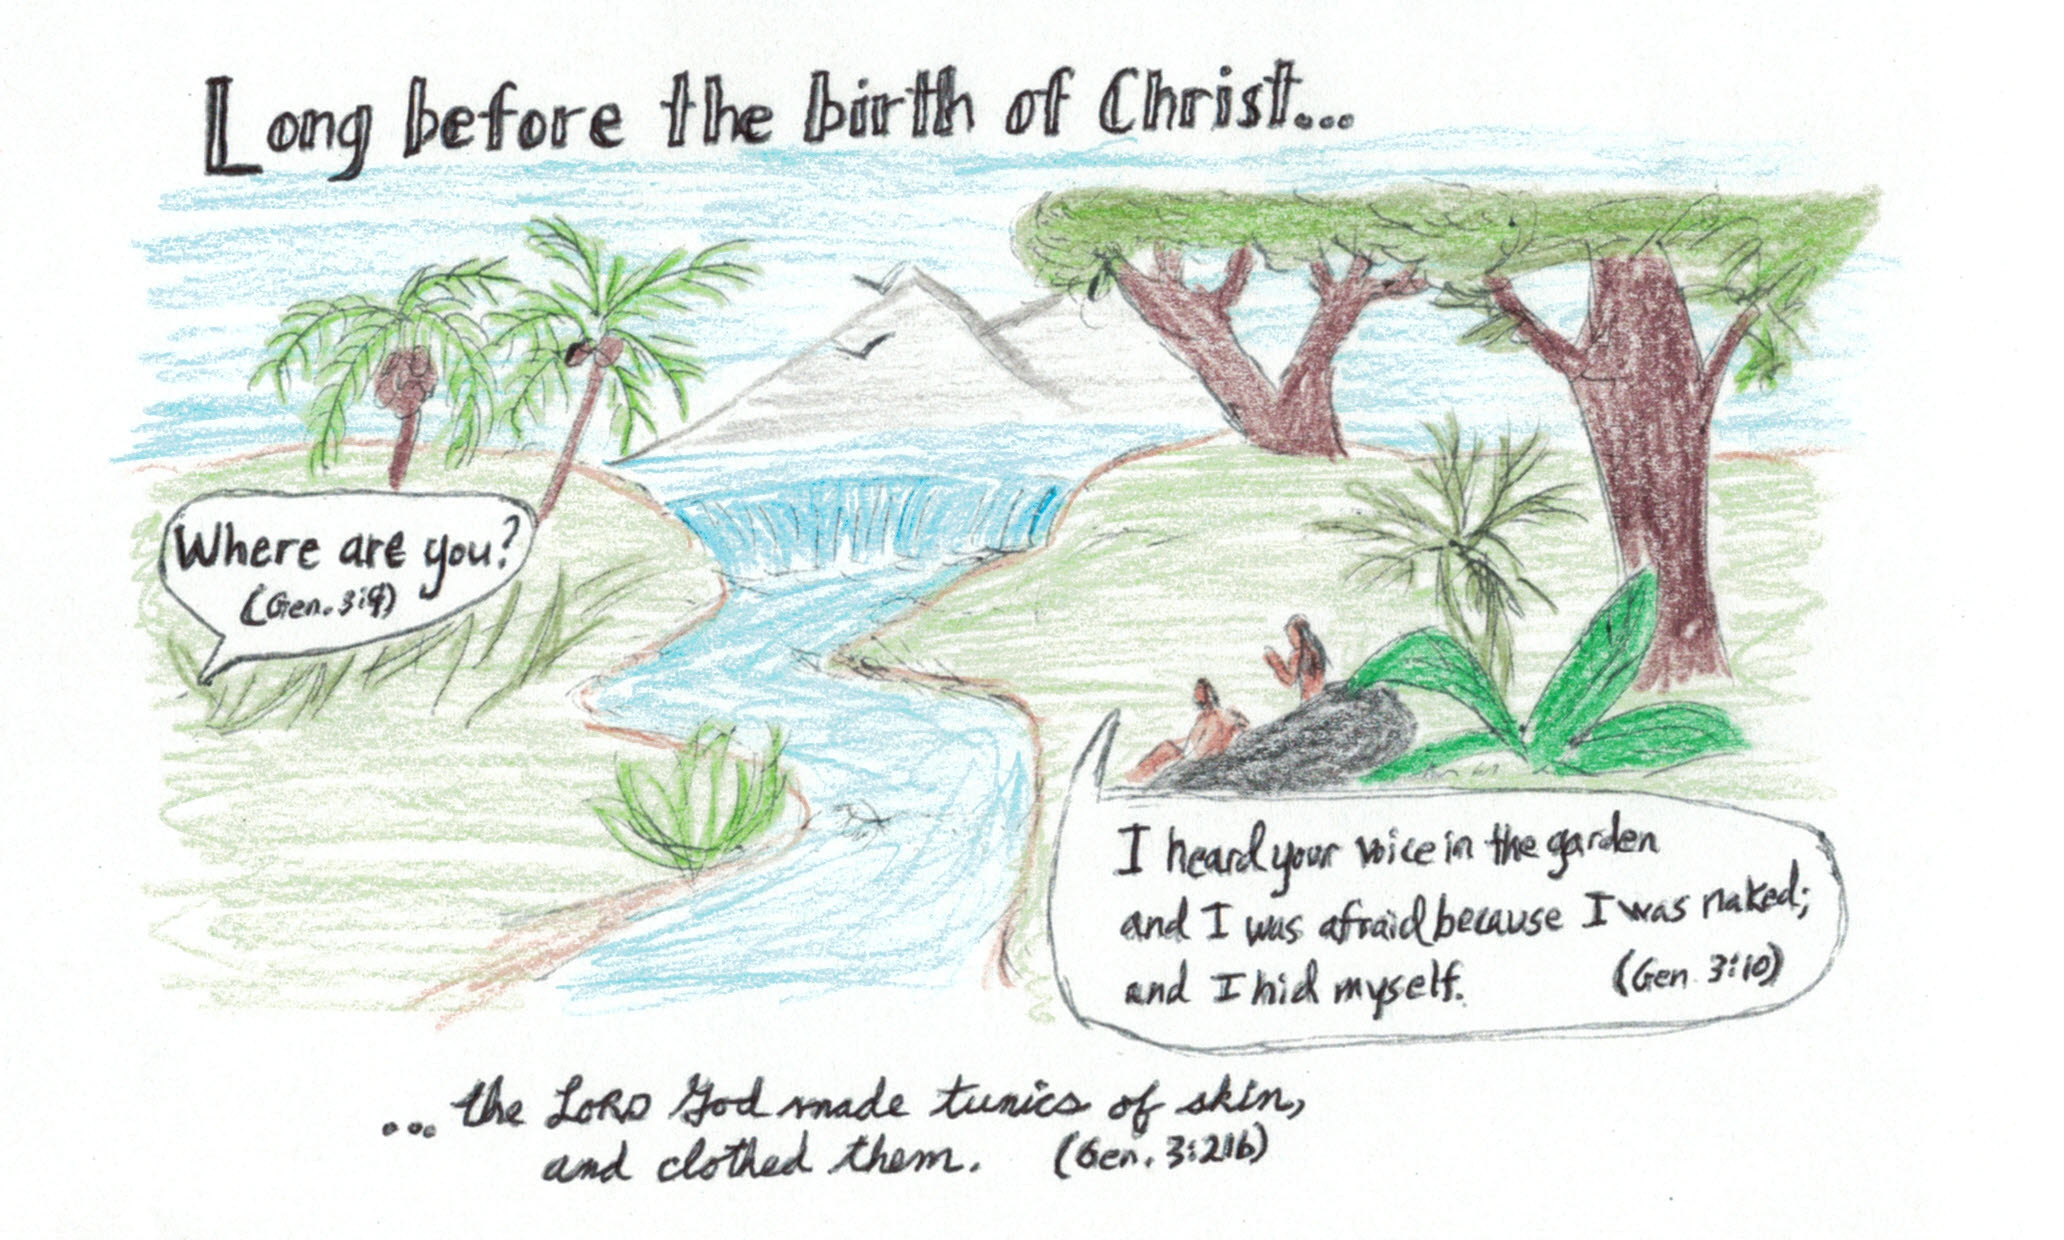 Long before the birth of Christ...
Where are you?
(Gen. 3:9)
I heard your voice in the garden
and I was afraid because I was naked;
and I hid myself. (Gen. 3:10)
... the LORD God made tunics of skin,
and clothed them. (Gen. 3:21b)